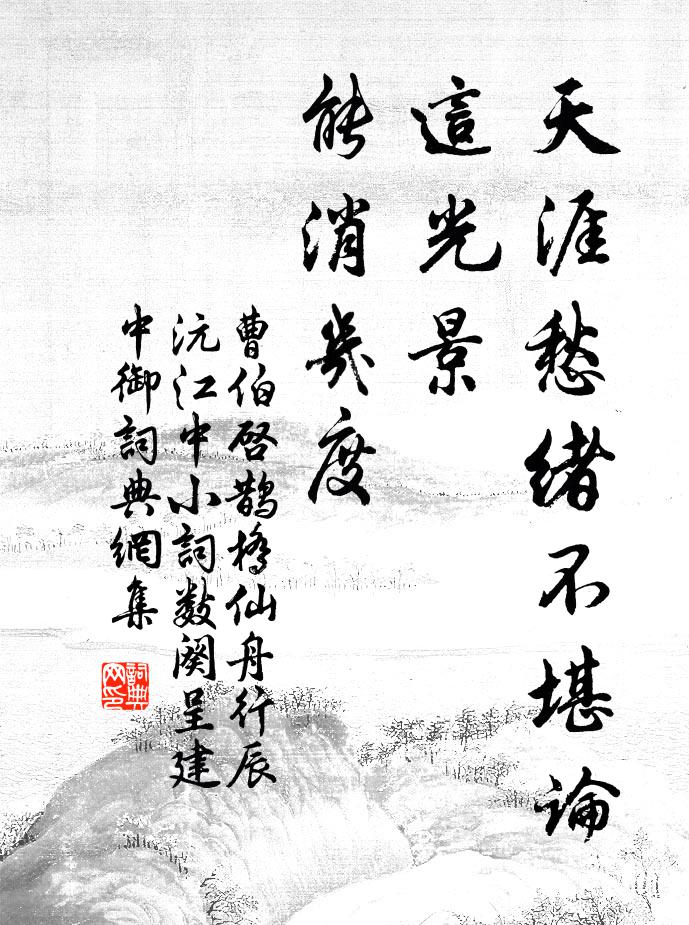 天涯愁緒不堪論
這光景
能消幾度
曹伯啓鵲橋仙舟行辰
沅江中小詞数闋呈建
中御詞典網集
詞典
网印